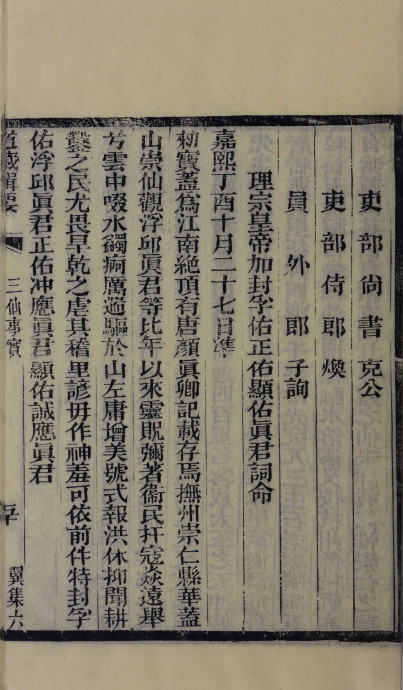 吏部尚書克公
吏部侍郎煥
員外郎子詢
理宗皇帝加封孚佑正佑顯佑眞君詞命
嘉熙丁酉十月二十七日準
勑寶蓋爲江南絕頂有唐顏眞卿記載存焉撫州崇仁縣華蓋
山崇仙觀浮邱眞君等比年以來靈貺彌著衞民扞寇焱遠舉
兮雲中啜水蠲痾厲遄驅於山左庸增美號式報洪休抑聞耕
鑿之民尤畏旱乾之虐其稽里諺毋作神羞可依前件特封孚
佑浮邱眞君正佑冲應眞君顯佑誠應眞君
道藏輯要
三仙事實
翼集六